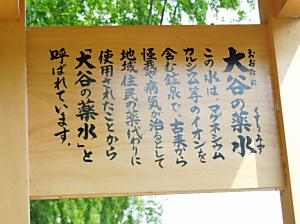 おおたに くすりみず
大谷の薬水
この水は マグネシウム
カルシウム等のイオンを
含む鉱泉で 古来から
怪我や病気が治るとして
地域住民の薬代わりに
使用されたことから
「大谷の薬水」と
呼ばれています。